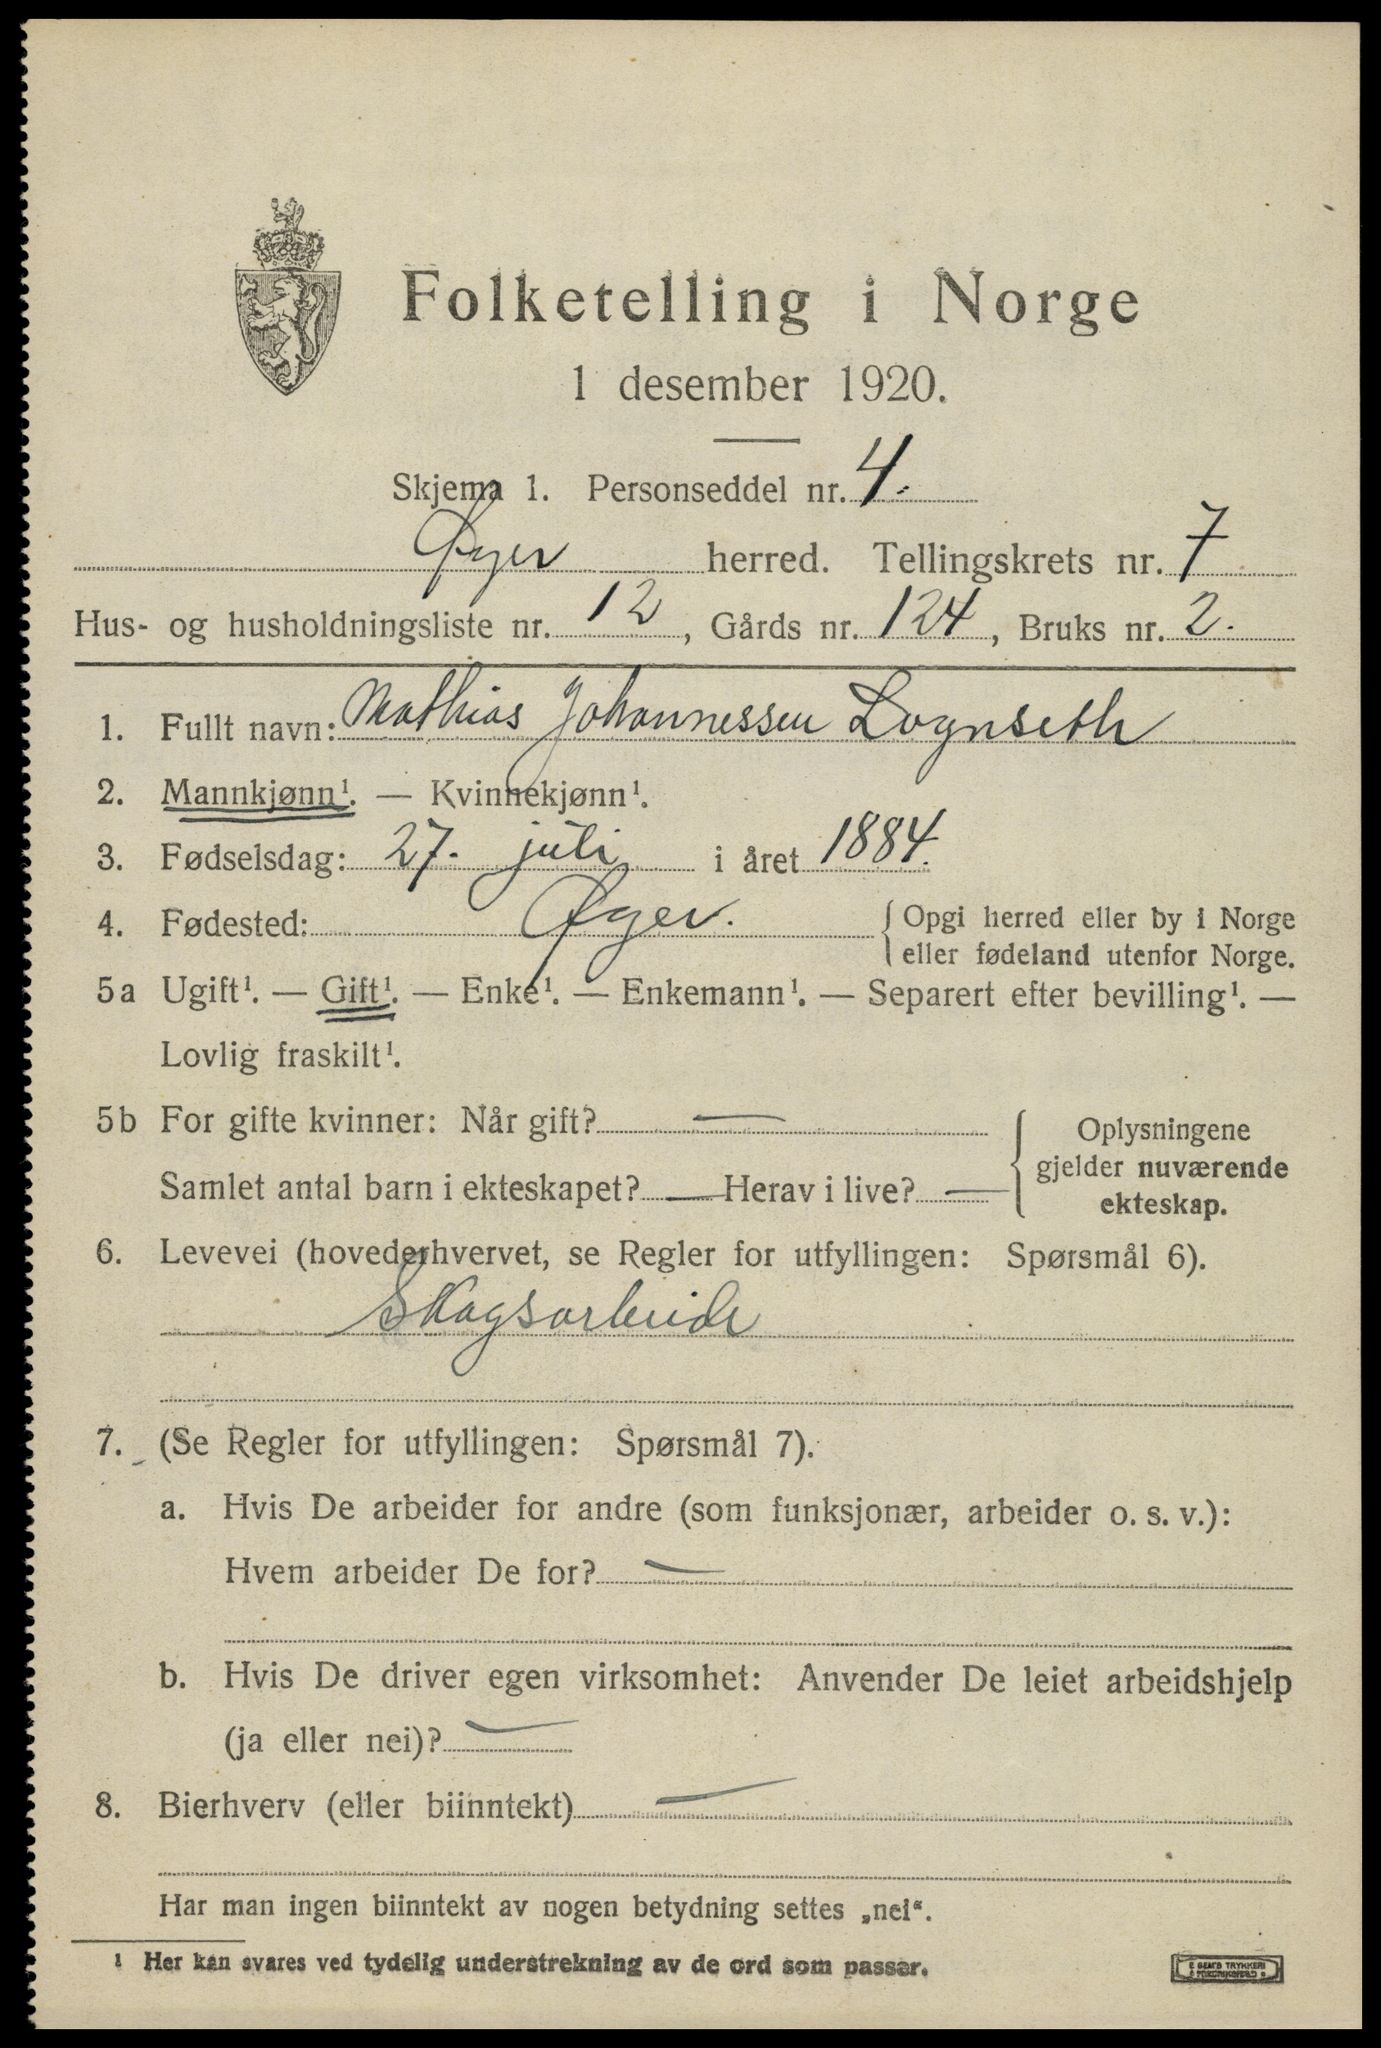 Folketelling i Norge
1 desember 1920.
Skjema 1. Personseddel nr. 4.
Øyer herred. Tellingskrets nr. 7
Hus- og husholdningsliste nr. 12, Gårds nr. 124, Bruks nr. 2.
1. Fullt navn: Mathias Johannessen Lognseth
2. Mannkjønn¹. — Kvinnekjønn¹.
3. Fødselsdag: 27. juli i året 1884.
4. Fødested: Øyer. { Opgi herred eller by i Norge
eller fødeland utenfor Norge.
5a Ugift¹. — Gift¹. — Enke¹. — Enkemann¹. — Separert efter bevilling¹. —
Lovlig fraskilt¹.
5b For gifte kvinner: Når gift? —
Samlet antal barn i ekteskapet? — Herav i live? —
Oplysningene
gjelder nuværende
ekteskap.
6. Levevei (hovederhvervet, se Regler for utfyllingen: Spørsmål 6).
Skogsarbeide
7. (Se Regler for utfyllingen: Spørsmål 7).
a. Hvis De arbeider for andre (som funksjonær, arbeider o. s. v.):
Hvem arbeider De for? —
b. Hvis De driver egen virksomhet: Anvender De leiet arbeidshjelp
(ja eller nei)? —
8. Bierhverv (eller biinntekt) —
Har man ingen biinntekt av nogen betydning settes „nei“.
¹ Her kan svares ved tydelig understrekning av de ord som passer.